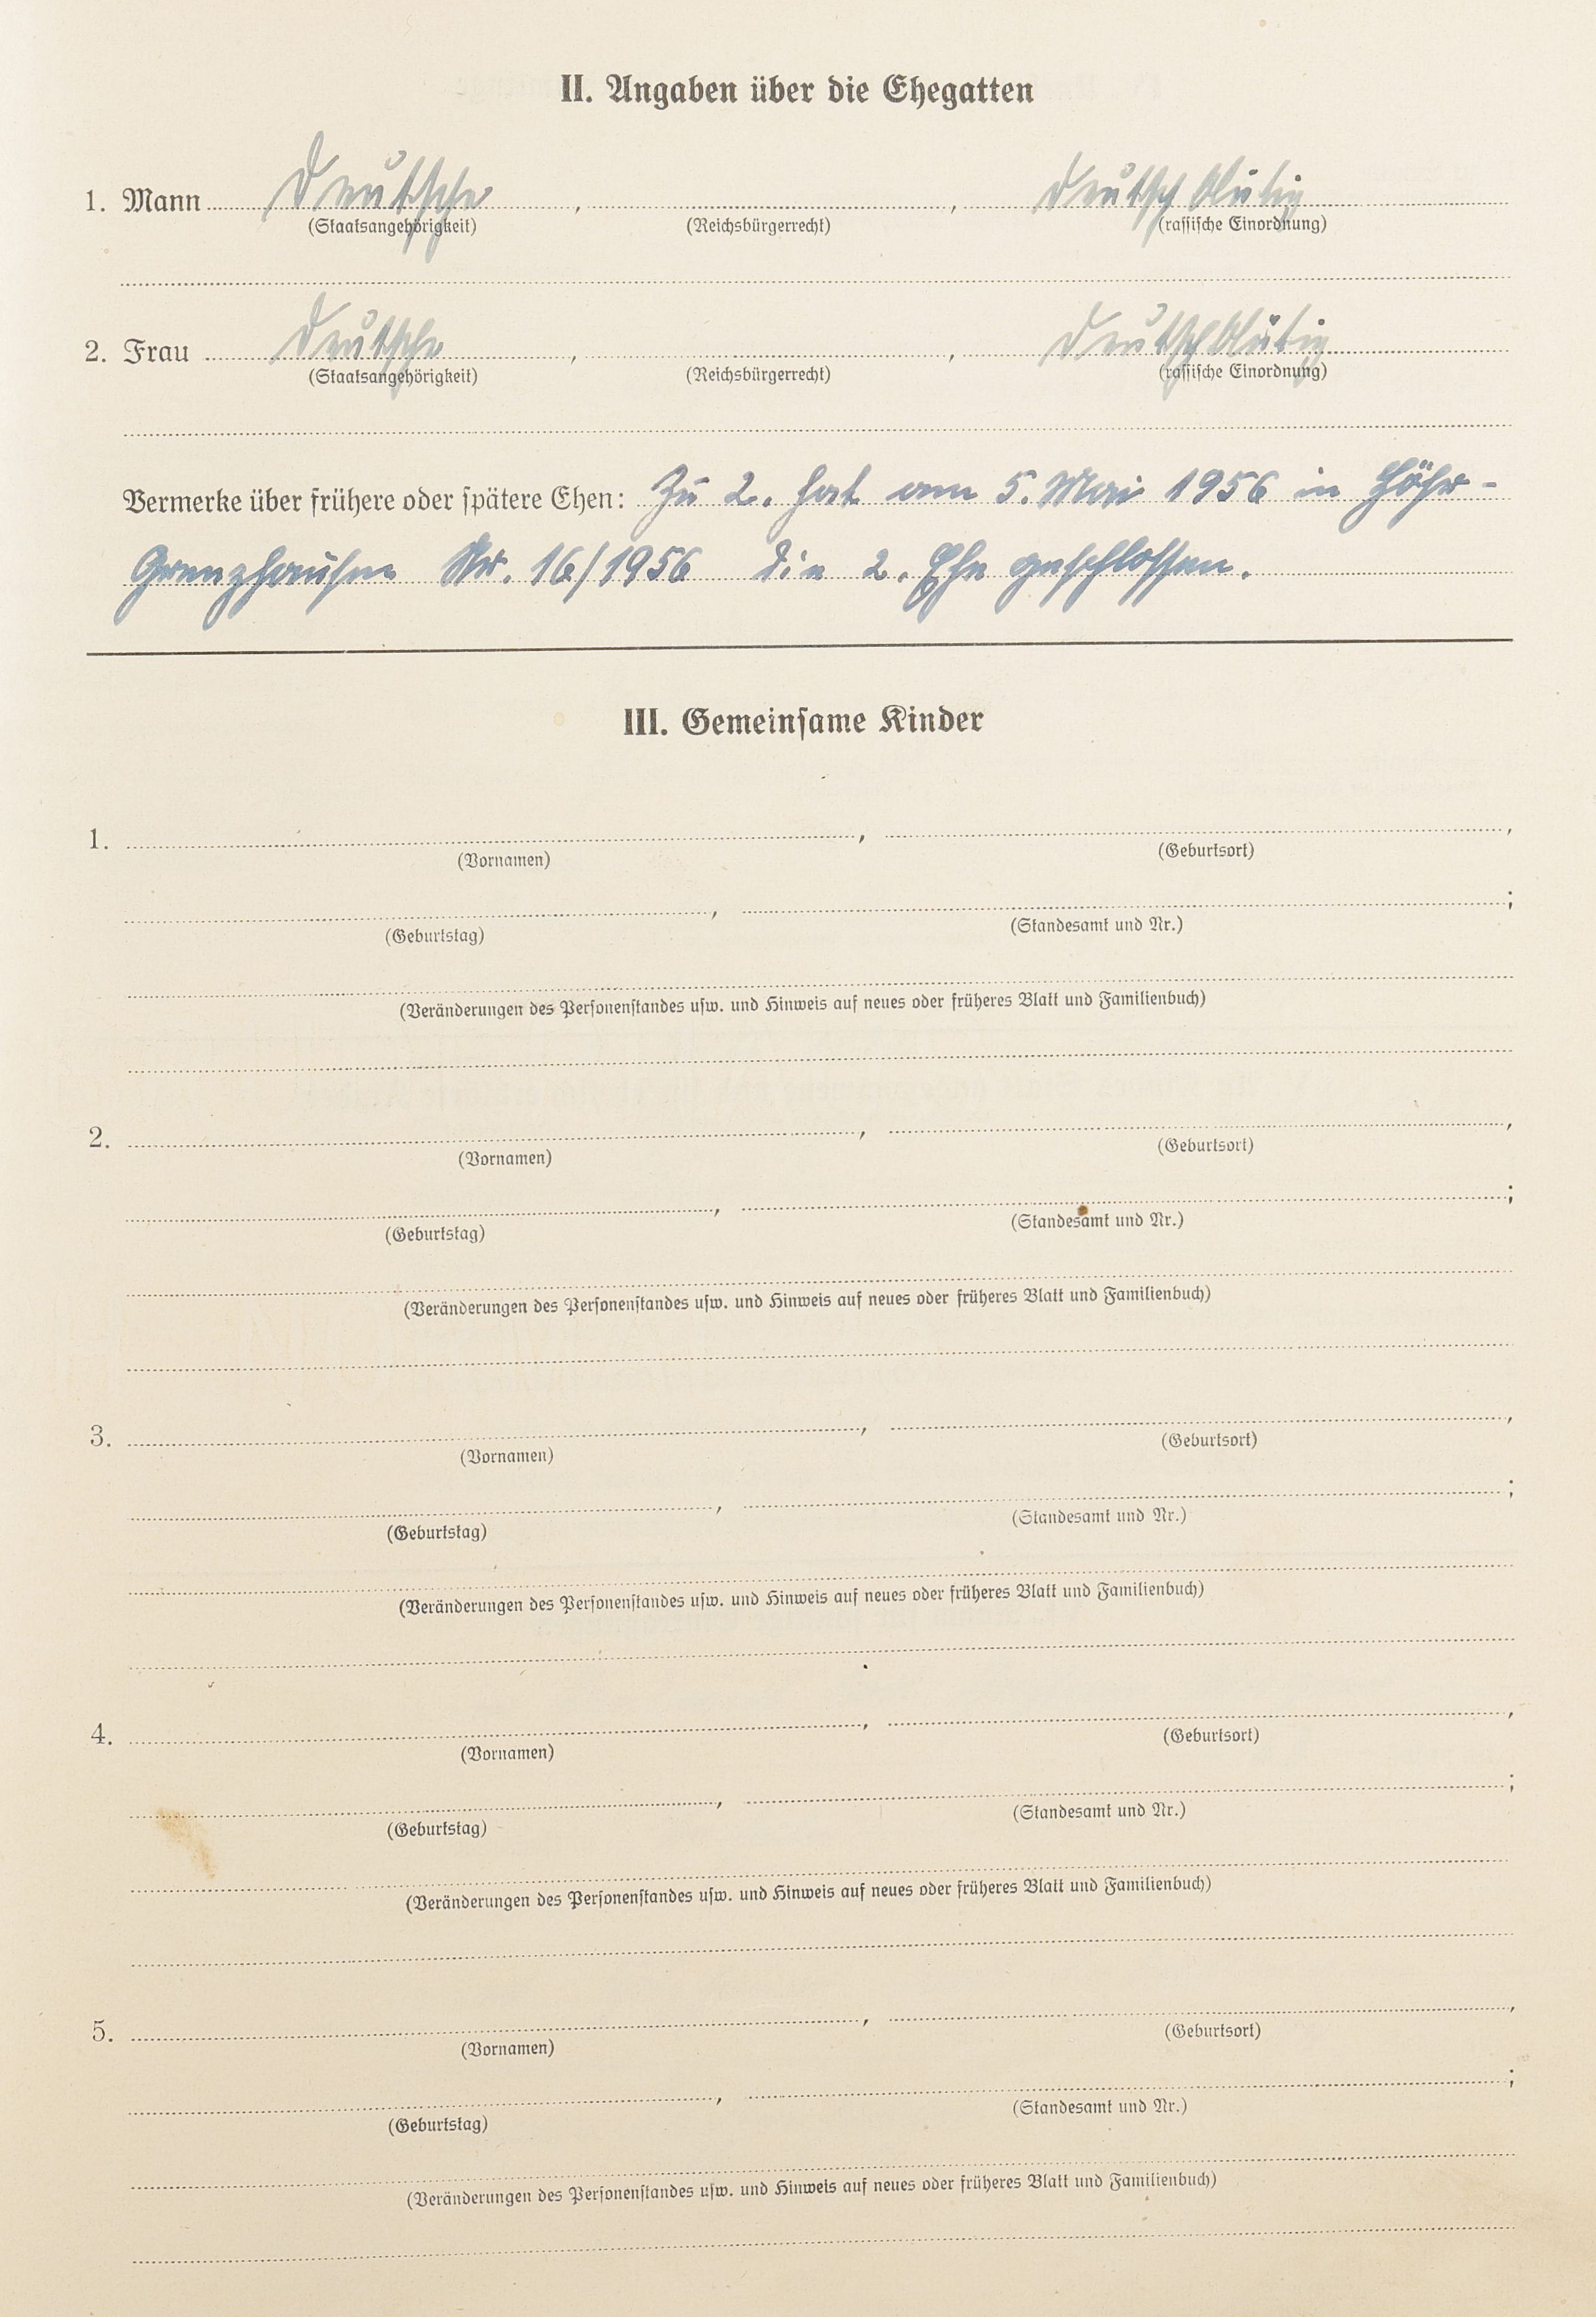 II. Angaben über die Ehegatten
1. Mann Deutscher , , deutschblütig
(Staatsangehörigkeit) (Reichsbürgerrecht) (rassische Einordnung)
2. Frau Deutsche , , deutschblütig
(Staatsangehörigkeit) (Reichsbürgerrecht) (rassische Einordnung)
Vermerke über frühere oder spätere Ehen: Zu 2. hat am 5. Mai 1956 in Höhr-
Grenzhausen Nr. 16/1956 die 2. Ehe geschlossen.
III. Gemeinsame Kinder
1. , ,
(Vornamen) (Geburtsort)
, ;
(Geburtstag) (Standesamt und Nr.)
(Veränderungen des Personenstandes usw. und Hinweis auf neues oder früheres Blatt und Familienbuch)
2. , ,
(Vornamen) (Geburtsort)
, ;
(Geburtstag) (Standesamt und Nr.)
(Veränderungen des Personenstandes usw. und Hinweis auf neues oder früheres Blatt und Familienbuch)
3. , ,
(Vornamen) (Geburtsort)
, ;
(Geburtstag) (Standesamt und Nr.)
(Veränderungen des Personenstandes usw. und Hinweis auf neues oder früheres Blatt und Familienbuch)
4. , ,
(Vornamen) (Geburtsort)
, ;
(Geburtstag) (Standesamt und Nr.)
(Veränderungen des Personenstandes usw. und Hinweis auf neues oder früheres Blatt und Familienbuch)
5. , ,
(Vornamen) (Geburtsort)
, ;
(Geburtstag) (Standesamt und Nr.)
(Veränderungen des Personenstandes usw. und Hinweis auf neues oder früheres Blatt und Familienbuch)